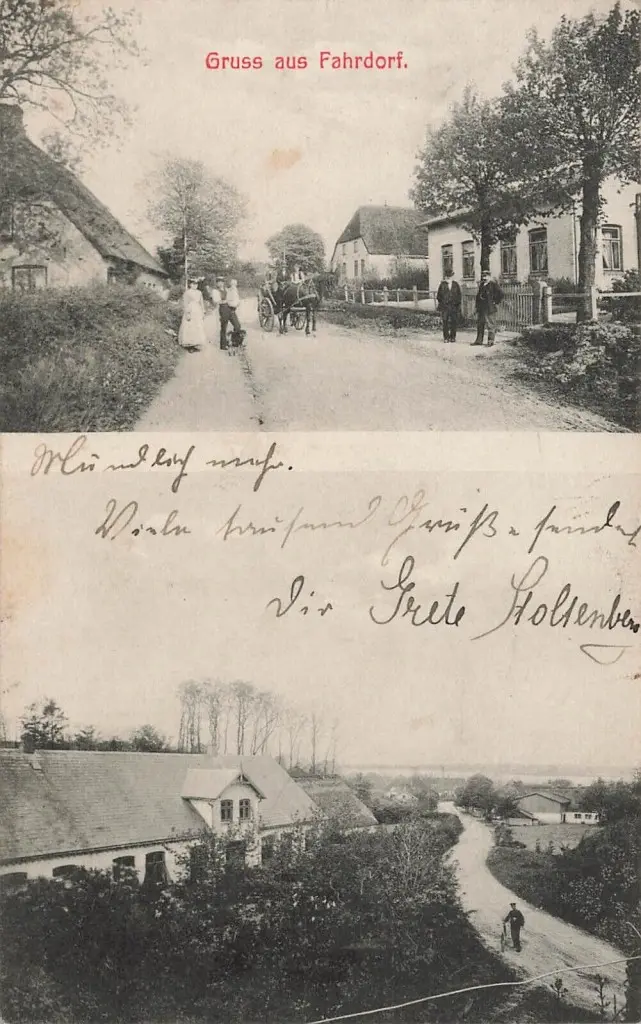 Gruss aus Fahrdorf.
Mündlich mehr.
Viele tausend Grüße sendet
Dir Grete Stoltenberg